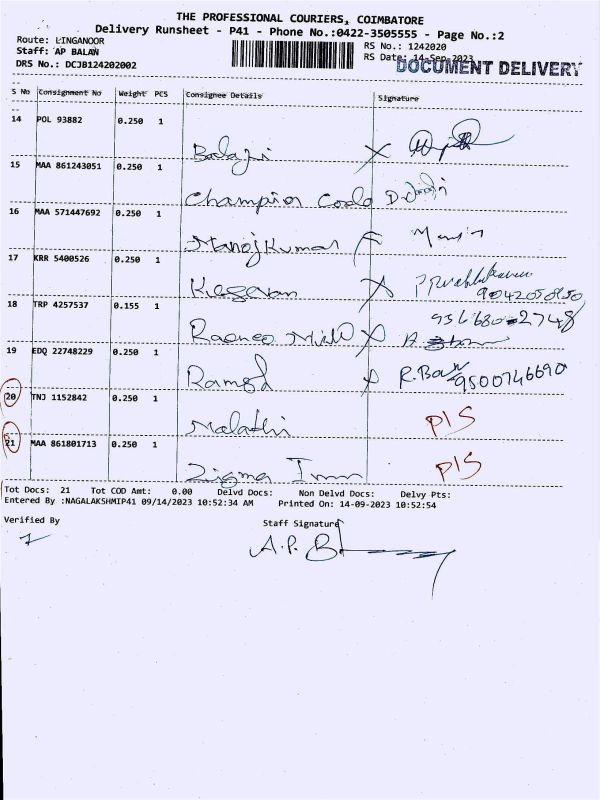 THE PROFESSIONAL COURIERS, COIMBATORE
Delivery Runsheet - P41 - Phone No.:0422-3505555 - Page No.:2
Route: LINGANOOR
RS No.: 1242020
Staff: AP BALAN
RS Date: 14-Sep-2023
DRS No.: DCJB124202002
DOCUMENT DELIVERY
S No Consignment No Weight PCS Consignee Details Signature
14 POL 93882 0.250 1
Balaji X
15 MAA 861243051 0.250 1
Champion Coalo
16 MAA 571447692 0.250 1
Manoj Kumar
17 KRR 5400526 0.250 1
Kesavan X
9042050850
18 TRP 4257537 0.155 1
X
19 EDQ 22748229 0.250 1
Ramesh X R.Bas
9500746690
20 TNJ 1152842 0.250 1
Malathi P/S
21 MAA 861801713 0.250 1
Zigma Inn P/S
Tot Docs: 21 Tot COD Amt: 0.00 Delvd Docs: Non Delvd Docs: Delvy Pts:
Entered By :NAGALAKSHMIP41 09/14/2023 10:52:34 AM Printed On: 14-09-2023 10:52:54
Verified By Staff Signature
A.P. B